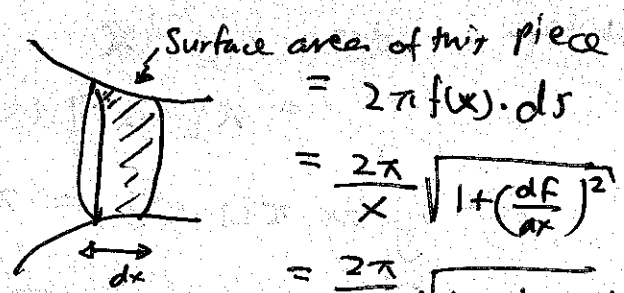 Surface area of this piece
= 2π f(x) · ds
= 2π/x √(1+(df/dx)²)
dx
= 2π